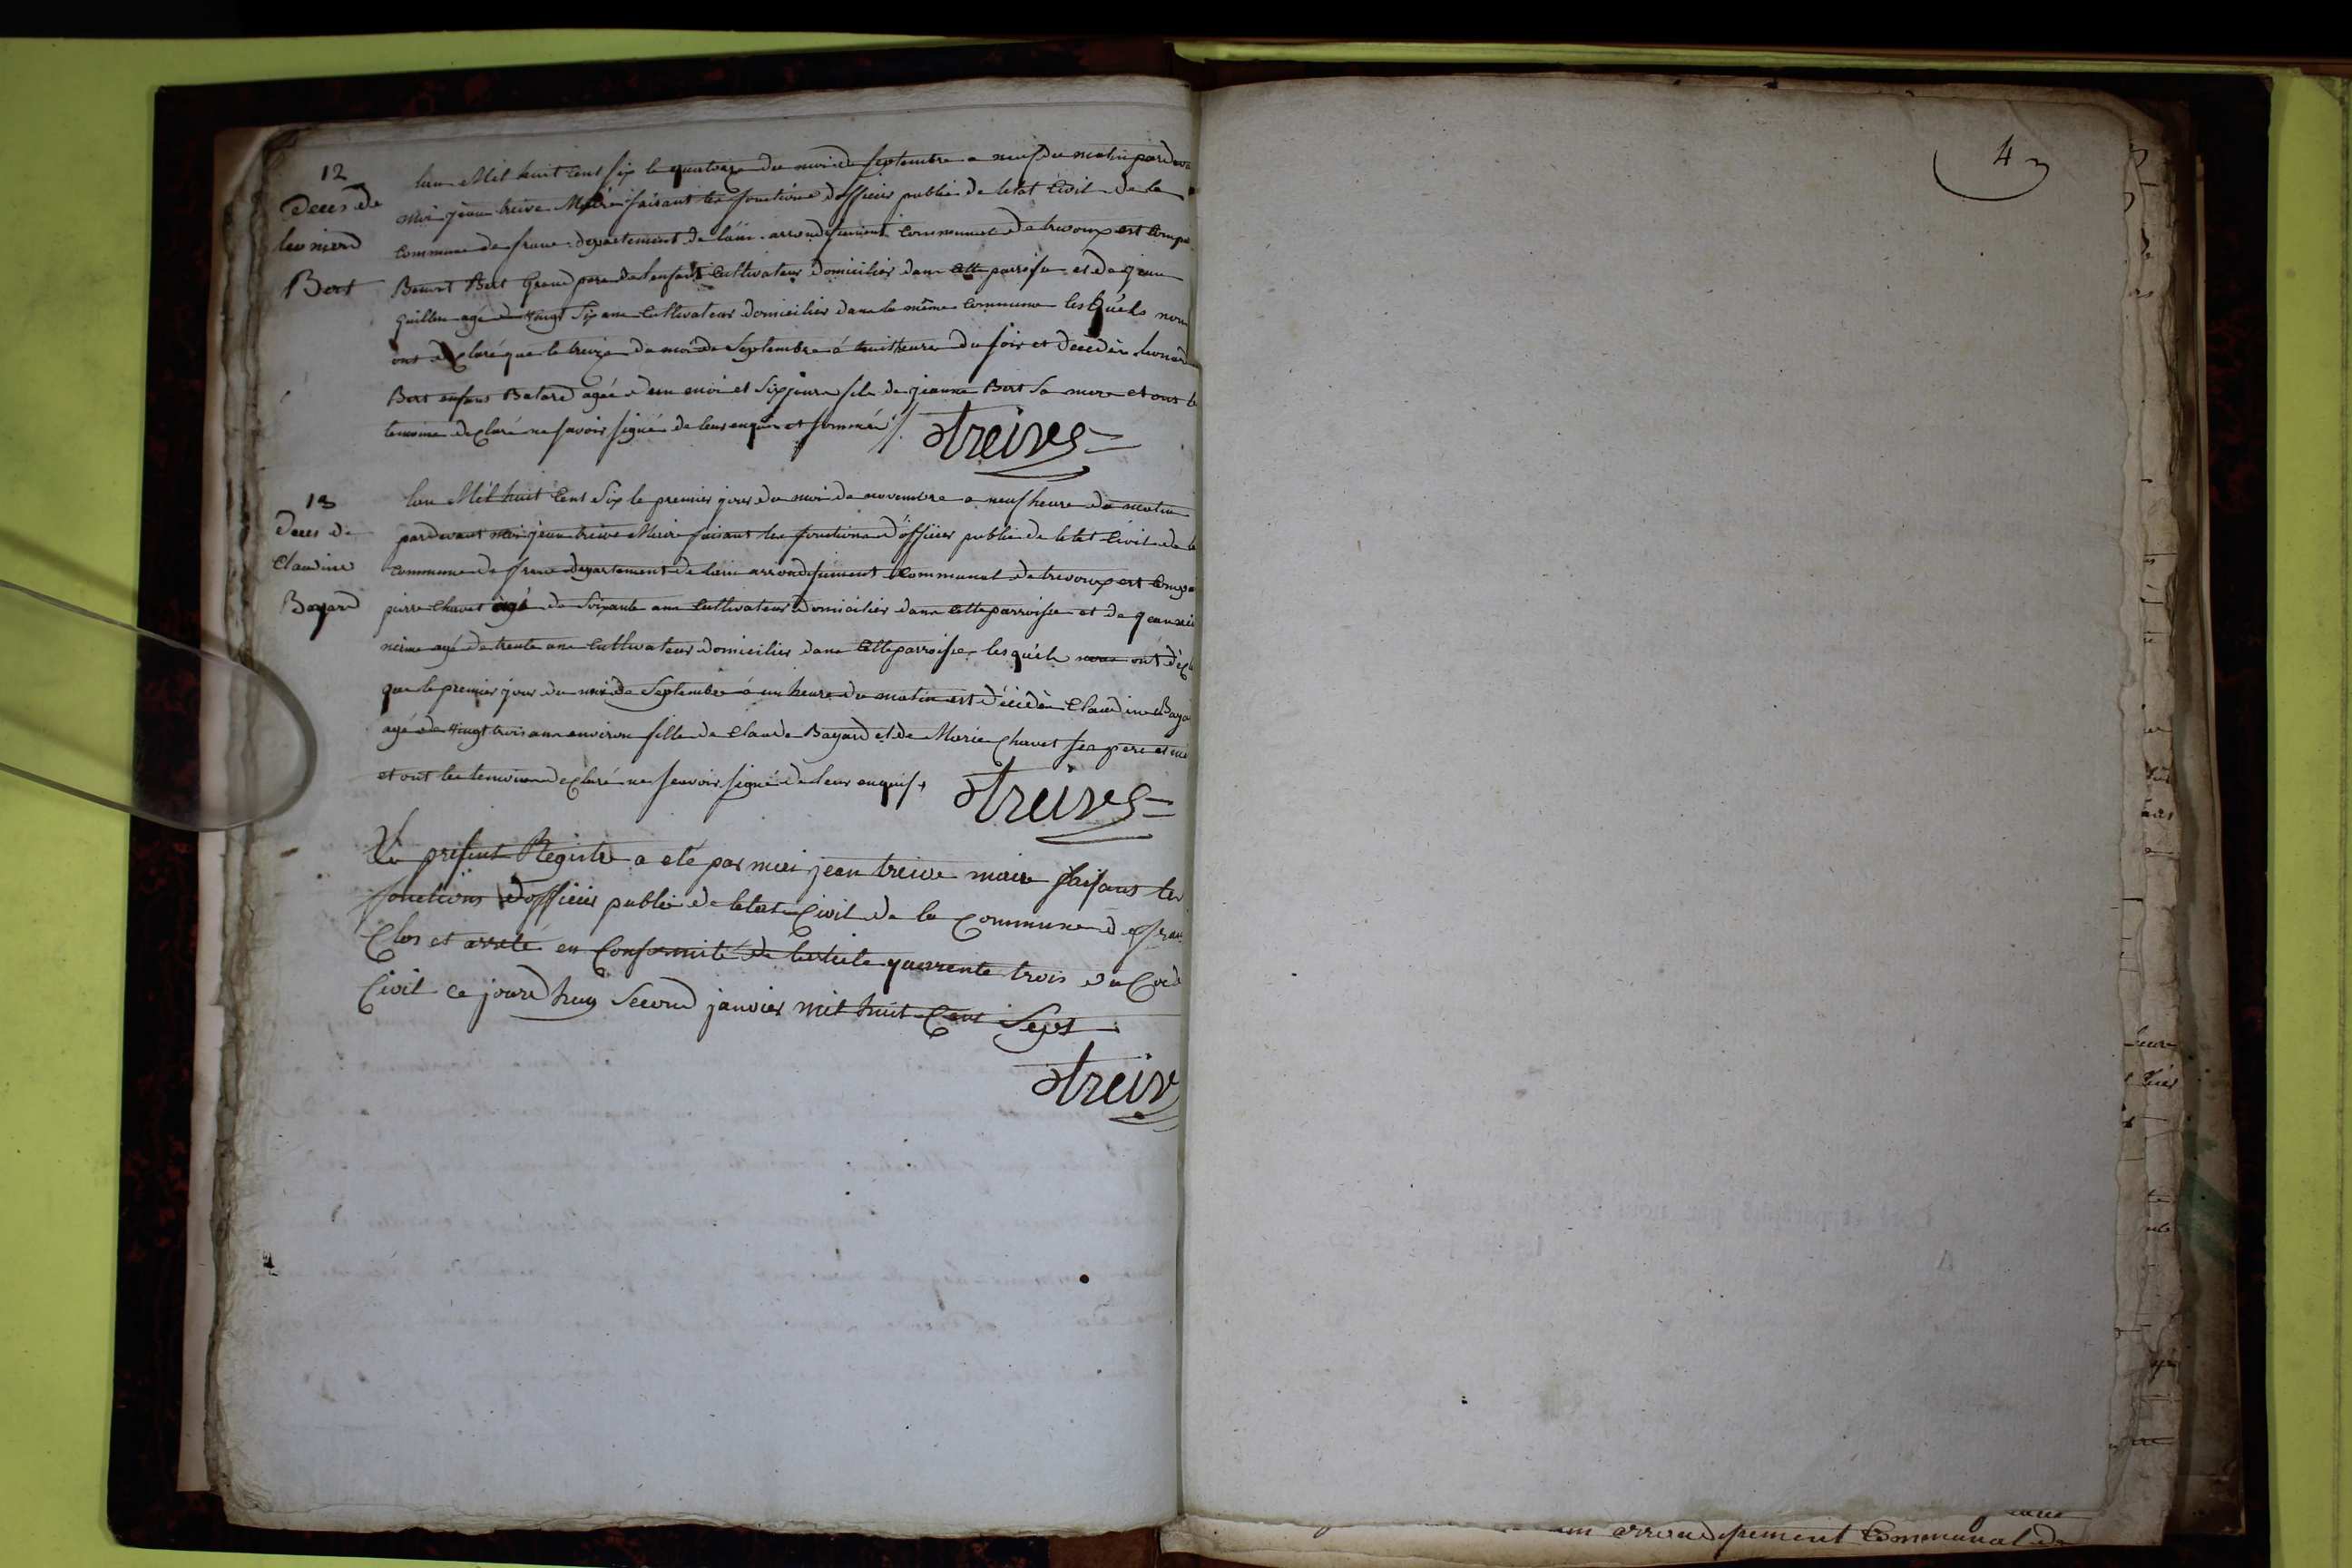 12
Deces de
leonard
Bert
lan Mil huit Cent six le quatorze du moi de septembre a neuf du matin pardeva
moi jean treive Maire faisant les fonctions dofficier public de letat Civil de la
Commune de frans departement de lain arrondissement Communal de trevoux est Compa
Benoit Bert Grand pere de lenfant Cultivateur domicilier dans Cette parroisse et de jean
guillon agé de vingt six ans Cultivateur domicilier dans la même Commune lesquels nous
ont declaré que le treize du moi de Septembre á huit heure du soir et decedèe leonard
Bert enfant Batard agée dun moi et six jours fils de jeanne Bert sa mere et ont le
temoins declaré ne savoir signé de leur enquis et sommée
treives
13
Deces de
Claudine
Bayard
lan Mil huit Cent Six le premier jour du moi de novembre a neuf heure du matin
pardevant moi jean treive Maire faisant les fonctions dófficier public de letat Civil de la
Commune de frans departement de lain arrondissement Communal de trevoux est Compa
pierre Chavet agé de Soixante ans Cultivateur domicilier dans Cette parroisse et de
agé de trente ans Cultivateur domicilier dans Cette parroisse lesquels nous ont décl
que le premier jour du moi de Septembre á un heure du matin est décedèe Claudine Baya
agé de vingt trois ans environ fille de Claude Bayard et de Marie Chavet ses pere et me
et ont les temoins declaré ne scavoir signé de leur enquis
treives
Le present Registre a eté par moi jean treive maire faisans les
fonctions dofficier public de letat Civil de la Commune de frans
Clos et arreté en Conformité de larticle quarrente trois du Code
Civil ce jourdhuy Second janvier mil huit Cent Sept
treive
4
arrondissement Communal de